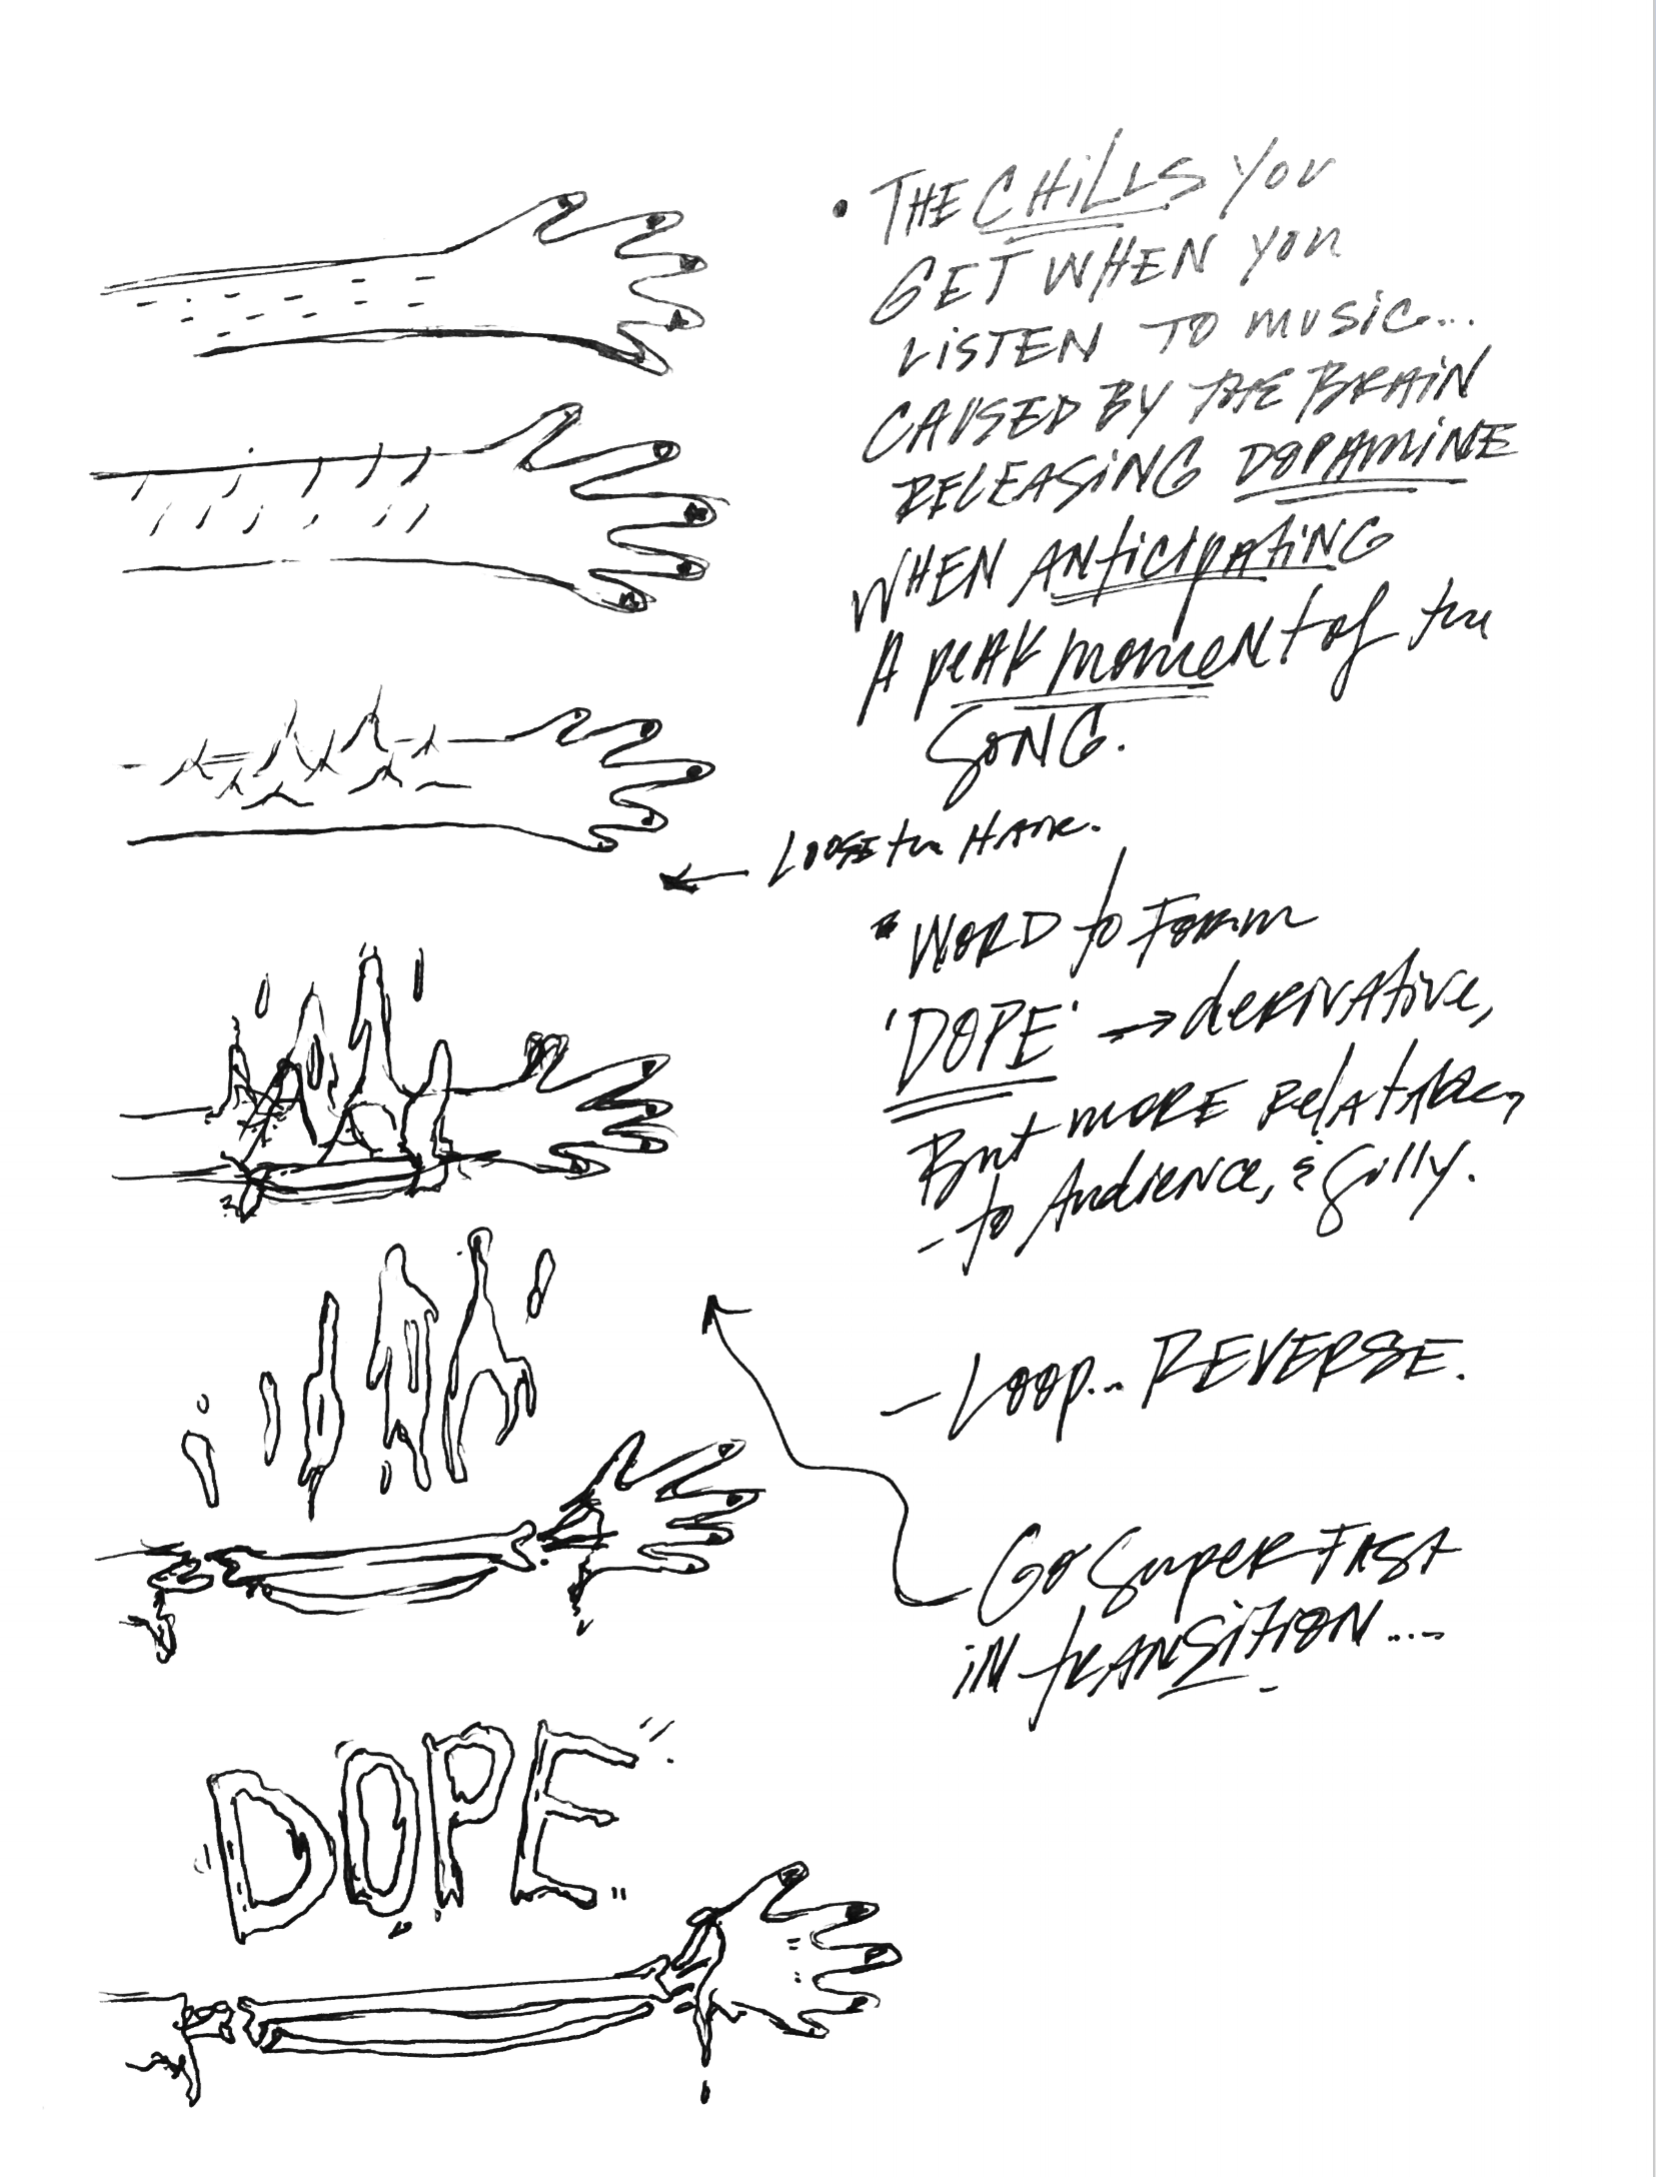 • THE CHILLS YOU
GET WHEN YOU
LISTEN TO MUSIC...
CAUSED BY THE BRAIN
RELEASING DOPAMINE
WHEN ANTICIPATING
A PEAK MOMENT of the
SONG.
← LOOSE the HAIR.
• WORD to FORM
'DOPE' → derivative,
But MORE Relatable,
- to Audience, & Silly.
- Loop... REVERSE.
Go Super FAST
iN tRANSITION....
DOPE